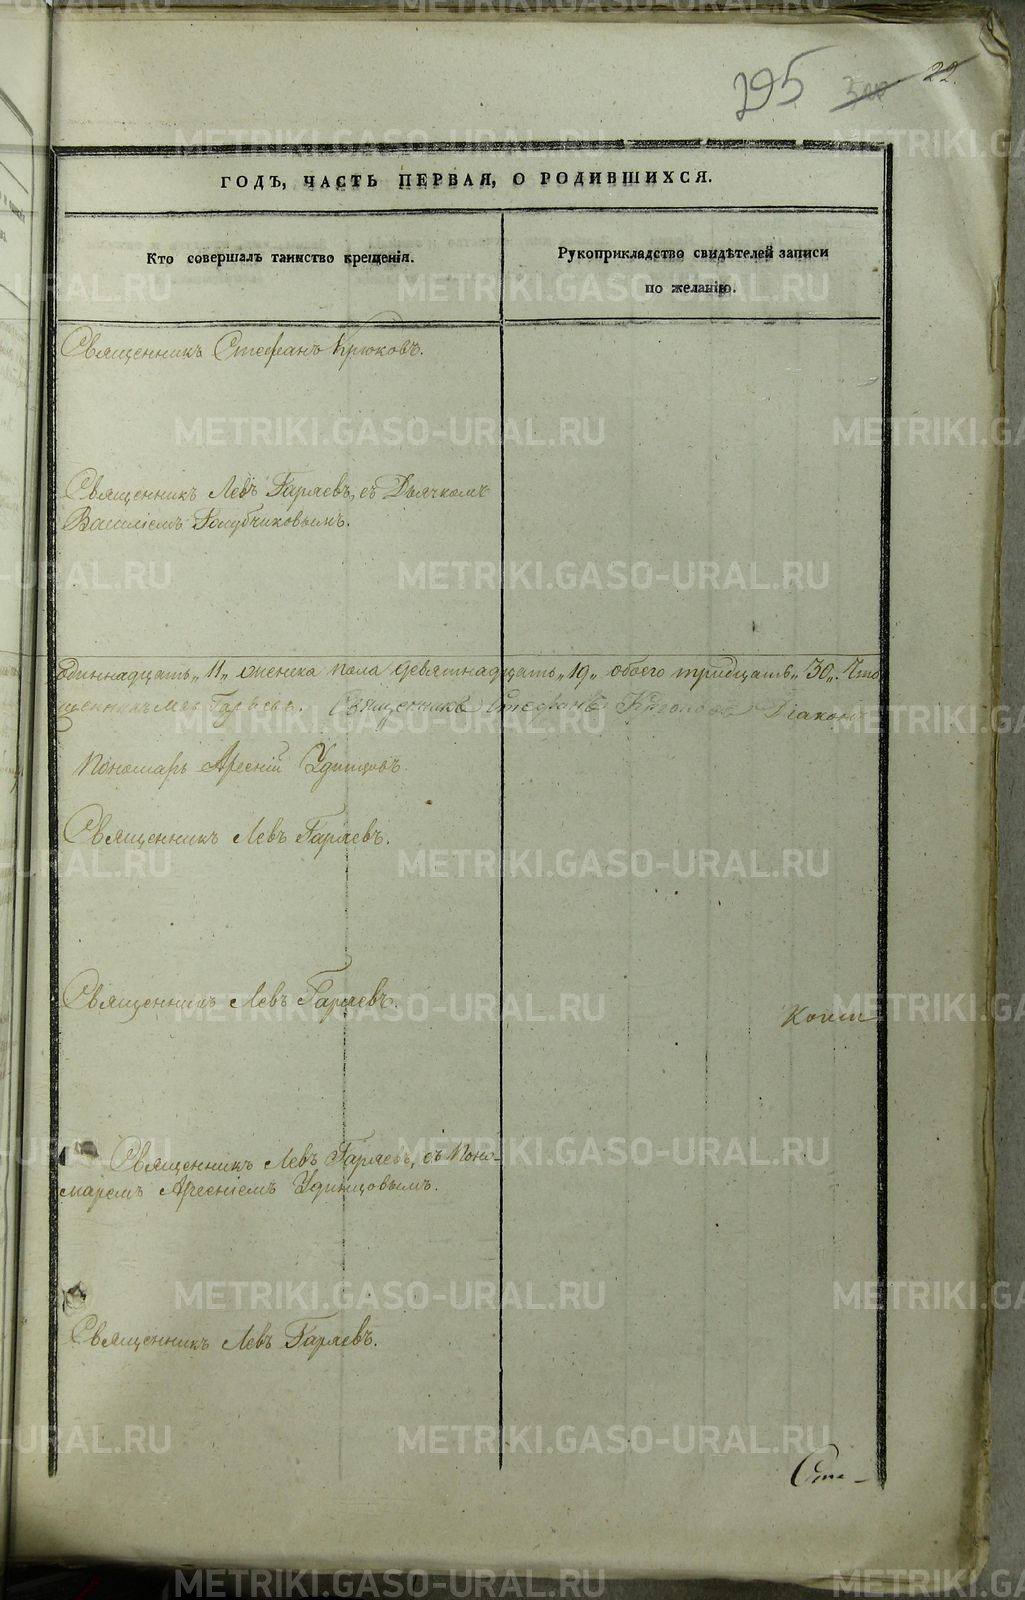 295 300 22.
ГОДЪ, ЧАСТЬ ПЕРВАЯ, О РОДИВШИХСЯ.
Кто совершалъ таинство крещенія.
Рукоприкладство свидѣтелей записи
по желанію.
Священникъ Стефанъ Крюковъ.
Священникъ Левъ Гаряевъ, съ Дьячкомъ
Василіемъ Голубчиковымъ.
одиннадцать „11„ женска пола девятнадцать „19„ обоего тридцать „30„. Что
щенникъ Левъ Гаряевъ. Священникъ Стефанъ Діаконъ
Пономарь Арсеній Удинцовъ.
Священникъ Левъ Гаряевъ.
Священникъ Левъ Гаряевъ.
Копи
Священникъ Левъ Гаряевъ, съ Поно-
маремъ Арсеніемъ Удинцовымъ.
Священникъ Левъ Гаряевъ.
METRIKI.GASO-URAL.RU